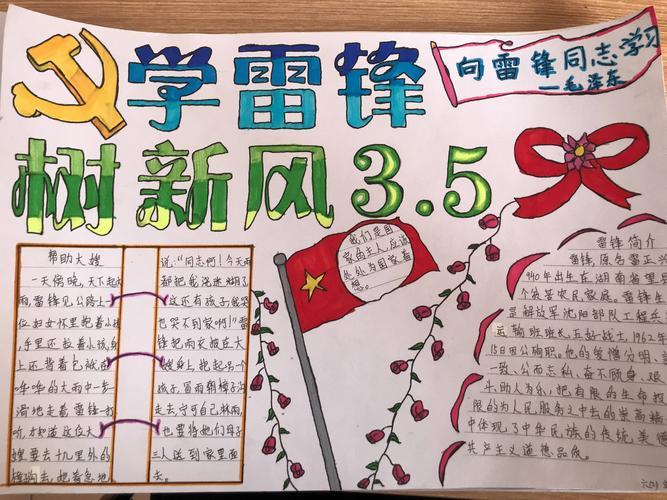 学雷锋
向雷锋同志学习
—毛泽东
树新风3.5
我们是国
家的主人,应该
处处为国家着
想。
帮助大嫂
一天傍晚,天下起大
雨,雷锋见公路上
位妇女怀里抱着小孩
手里还拉着小孩,身
上还背着包袱,在
哗哗的大雨中一步
滑地走着雷锋一打
听,才知道这位大
嫂要去十几里外的
她着急地
说:“同志啊!今天雨
都把我浇迷糊了
这还有孩子,我哭
也哭不到家啊!”雷
锋把雨衣披在大
嫂身上,抱起一个
孩子,冒雨朝樟子沟
走去,宁可自己淋雨,
也要将她们母子
三人送到家里面
去。
雷锋简介
雷锋,原名雷正兴
940年出生在湖南省望
个贫苦农民家庭。雷锋生
是解放军沈阳部队工程兵
运输班班长,五好战士,1962年
15日因公殉职。他的爱憎分明、
一致、公而忘私、奋不顾身、艰
斗助人为乐,把有限的生命投
限的为人民服务之中去的崇高精
中体现了中华民族的传统美德
共产主义道德品质。